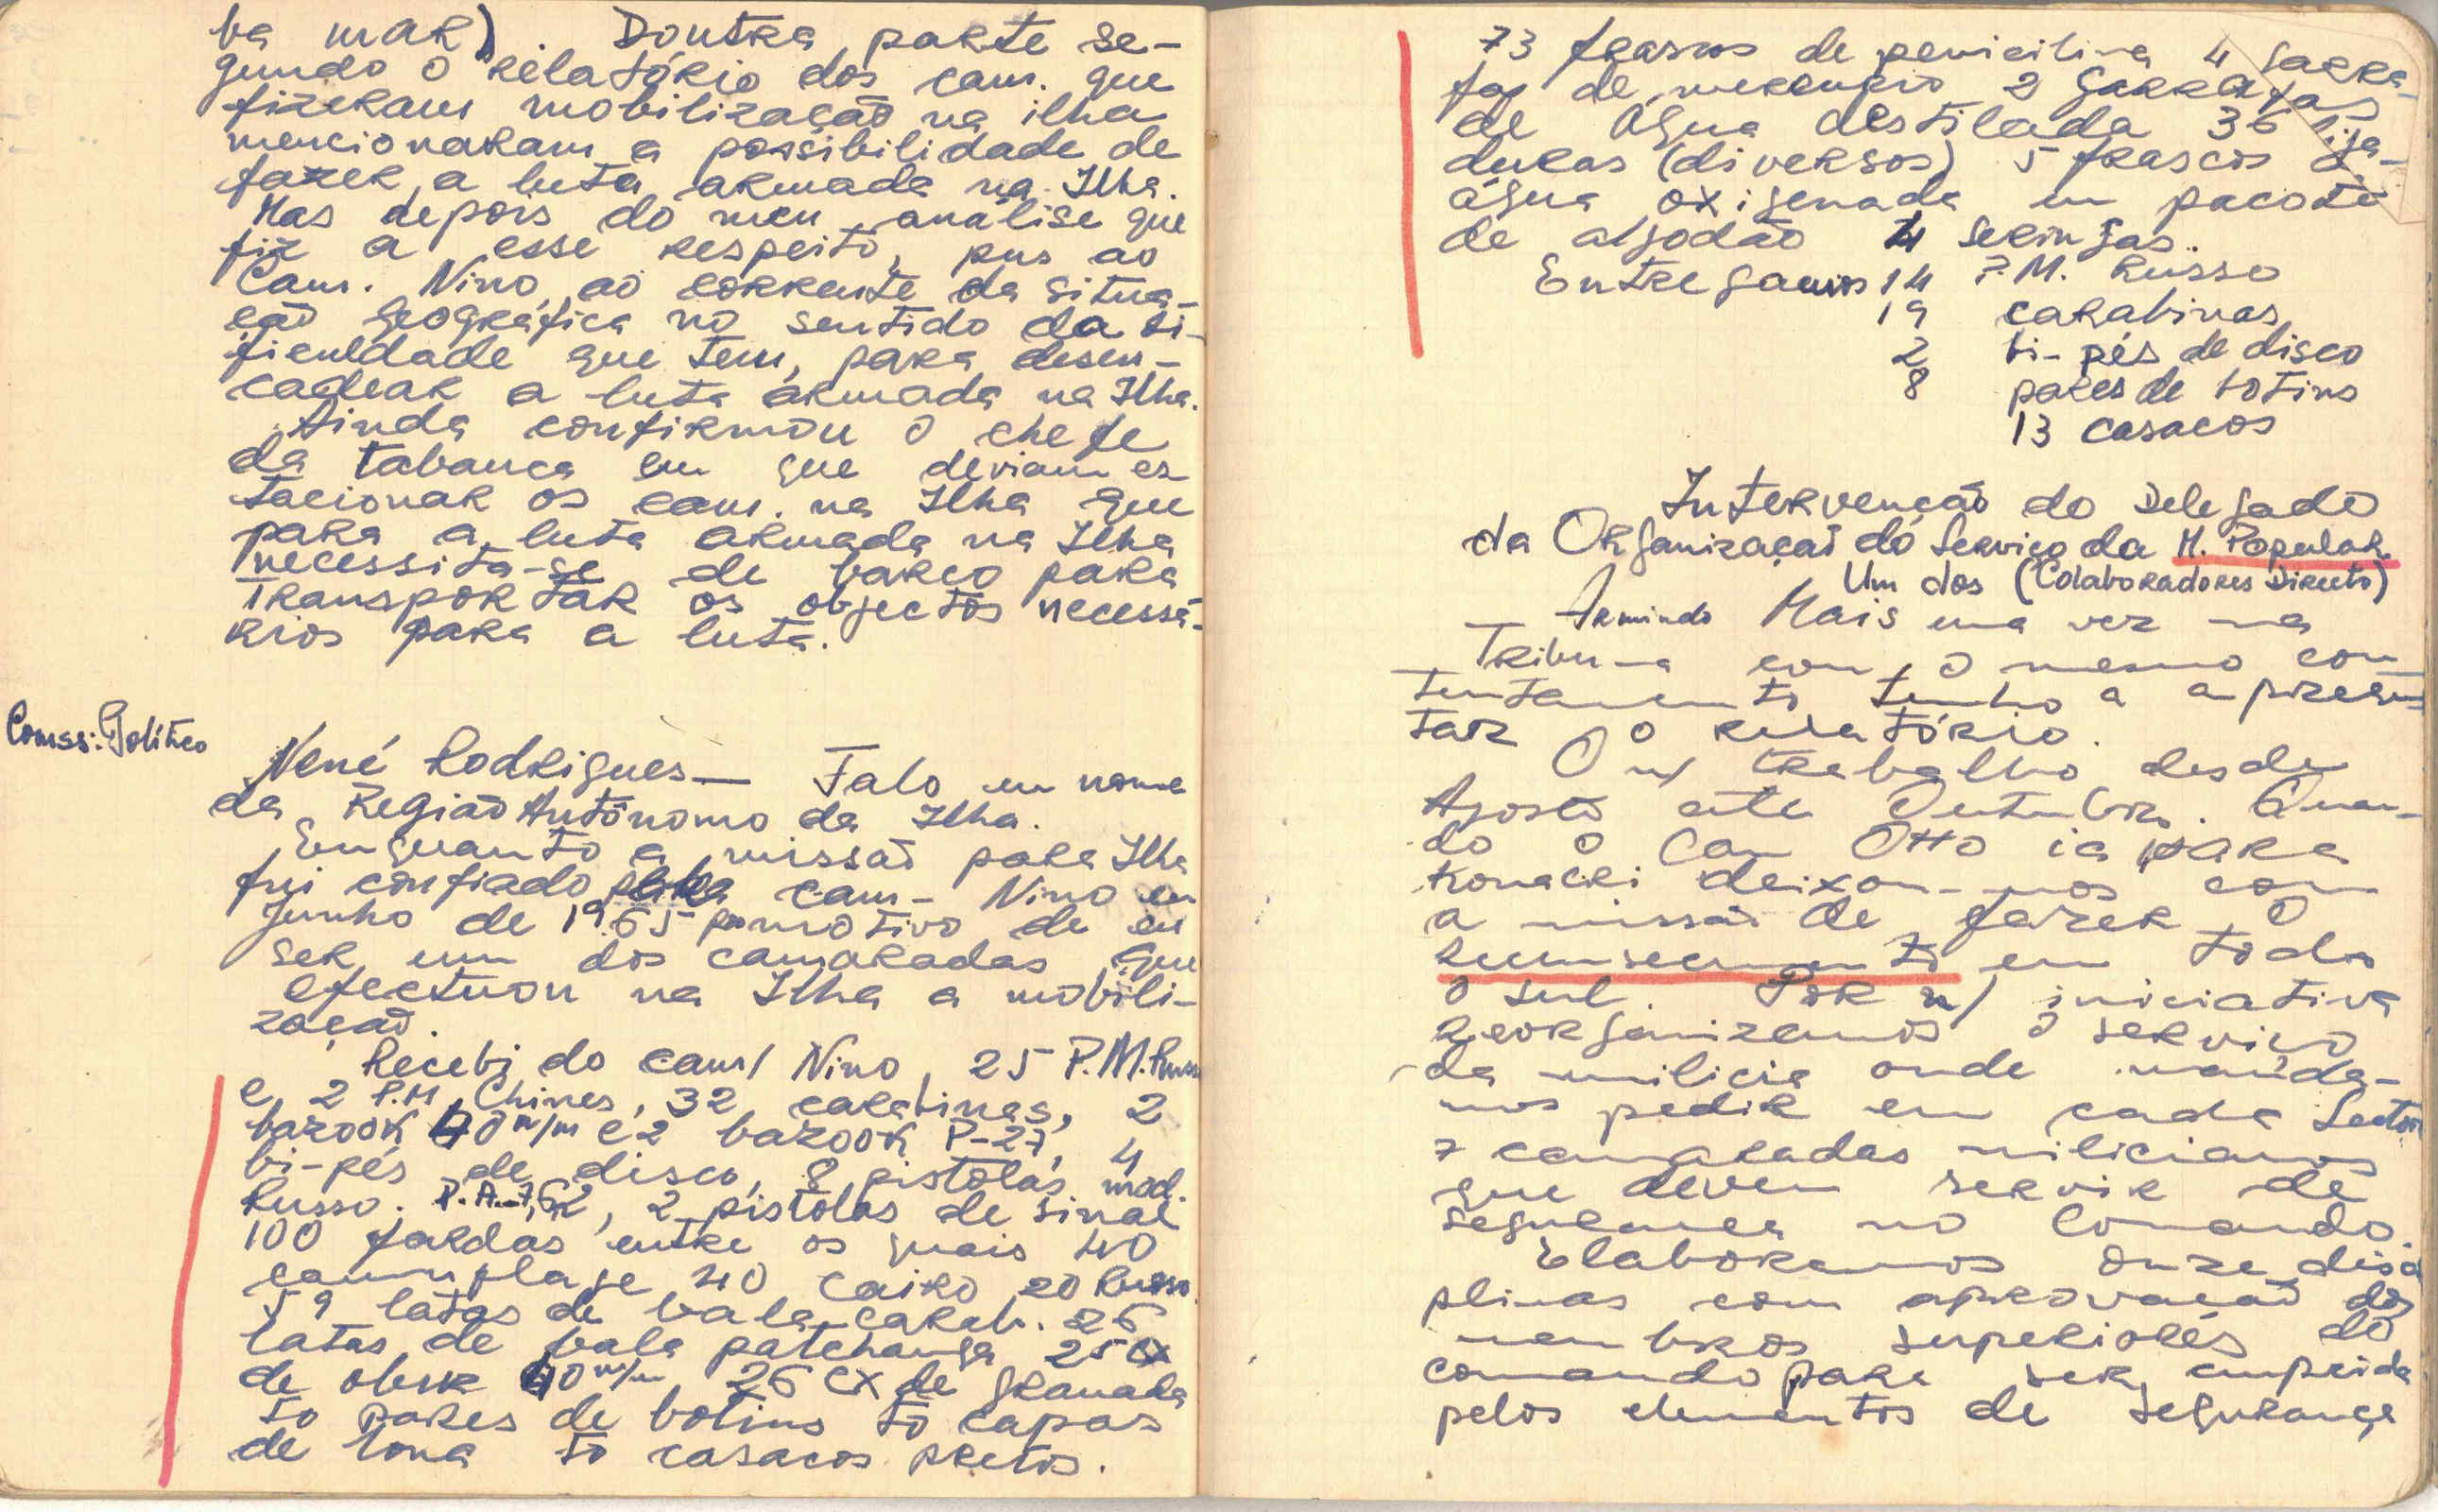 ba mar). Doutra parte se-
gundo o relatório dos cam. que
fizeram mobilização na ilha
mencionaram a possibilidade de
fazer a luta armada na Ilha.
Mas depois do meu análise que
fiz a esse respeito, pus ao
Cam. Nino ao corrente da situa-
ção geográfica no sentido da di-
ficuldade que tem, para desen-
cadear a luta armada na Ilha.
Ainda confirmou o chefe
da tabanca em que deviam es-
tacionar os cam. na Ilha que
para a luta armada na Ilha
necessita-se de barco para
transportar os objectos necessá-
rios para a luta.
Comss: Político
Nené Rodrigues — Falo em nome
da Região Autónomo da Ilha.
Enquanto a missão para Ilha
fui confiado pelo cam- Nino em
Junho de 1965 por motivo de eu
ser um dos camaradas que
efectuou na Ilha a mobili-
zação.
Recebi do cam/ Nino, 25 P.M. Russo
e 2 P.M Chines, 32 carabinas, 2
bazook 40 m/m e 2 bazook P-27, 4
bi-pés de disco, 8 pistolas mod.
Russo. P.A. 7,62, 2 pistolas de sinal
100 fardas entre os quais 40
camuplage 40 cairo 20 Russo.
59 latas de bala carab. 26
latas de bala patchanga 25 cx
de obuz 60 m/m 26 cx de granada
50 pares de botins 50 capas
de lona 50 casacos pretos.
73 frascos de penicilina 4 garra-
fas de mercurio 2 garrafas
de água destilada 36 liga-
duras (diversos) 5 frascos d
água oxigenada um pacote
de algodão 4 seringas.
Entregamos 14 P.M. Russo
19 carabinas
2 bi-pés de disco
8 pares de botins
13 casacos
Intervenção do Delegado
da Organização do Serviço da M. Popular
Um dos (Colaboradores Directo)
— Armindo Mais uma vez na
Tribuna com o mesmo con-
tentamento tenho a apresen-
tar o relatório.
O n/ trabalho desde
Agosto até Outubro. Quan-
do o Cam Otto ia para
Konacri deixou-nos com
a missão de fazer o
recenseamento em todo
o sul. Por n/ iniciativa
reorganizamos o serviço
da milicia onde manda-
mos pedir em cada Sector
7 camaradas milicianos
que devem servir de
segurança no Comando.
Elaboramos onze disci
plinas com aprovação dos
membros superiores do
comando para ser cumprida
pelos elementos de segurança